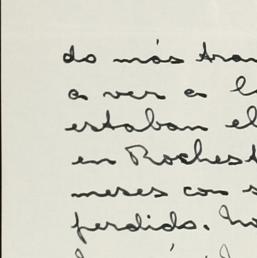 do más tran
a ver a l
estaban el
en Rochest
meses con s
perdido. No